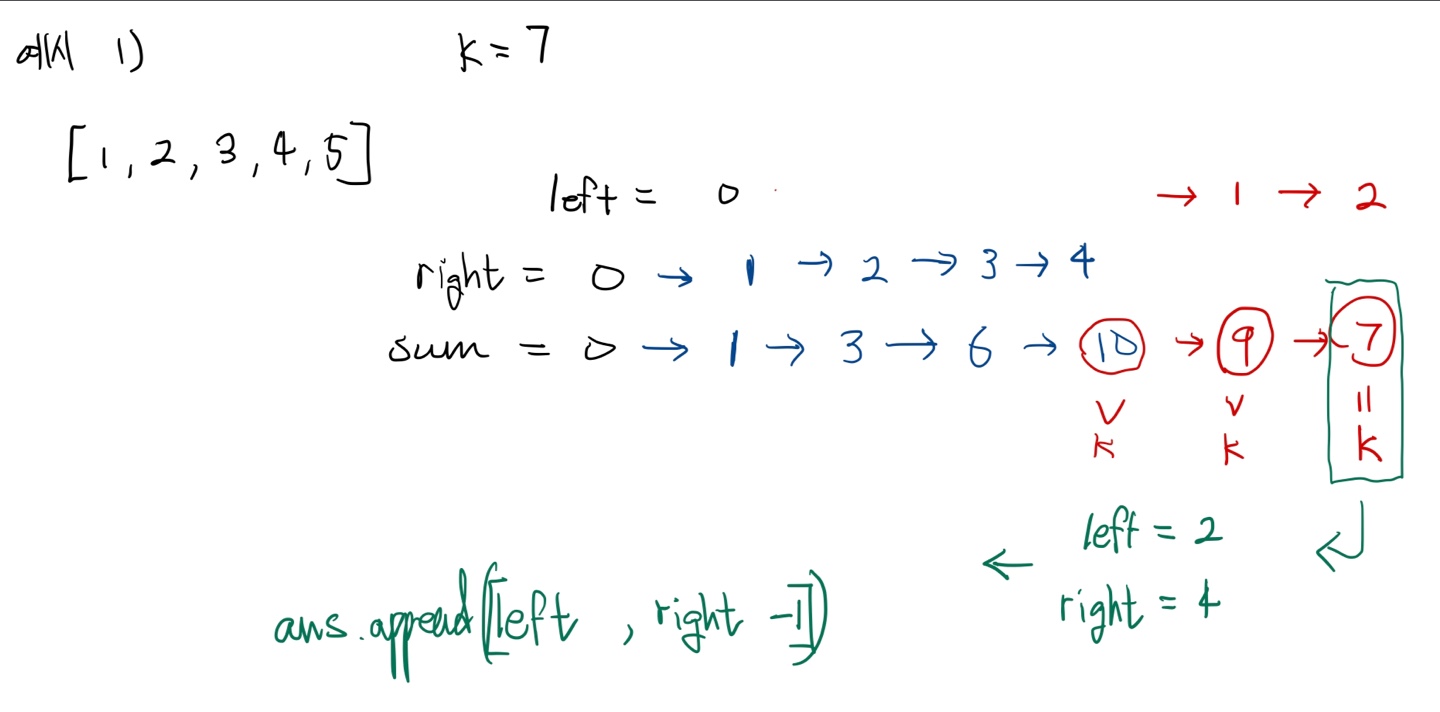 예시 1) k = 7
[1, 2, 3, 4, 5]
left = 0 → 1 → 2
right = 0 → 1 → 2 → 3 → 4
sum = 0 → 1 → 3 → 6 → 10 → 9 → 7
∨ ∨ =
k k k
left = 2
←
right = 4
ans.append([left , right -1])